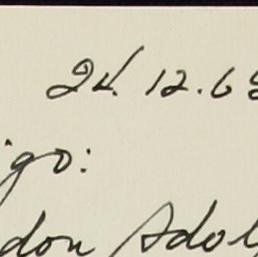 24.12.6
igo:
don Adol